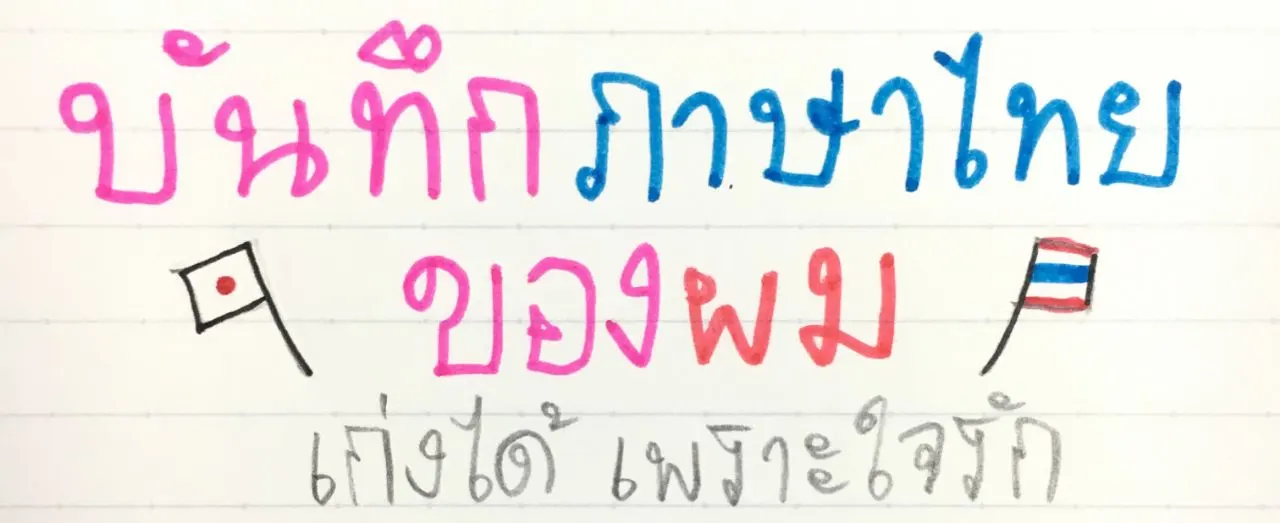 บันทึกภาษาไทย
ของผม
เก่งได้ เพราะใจรัก